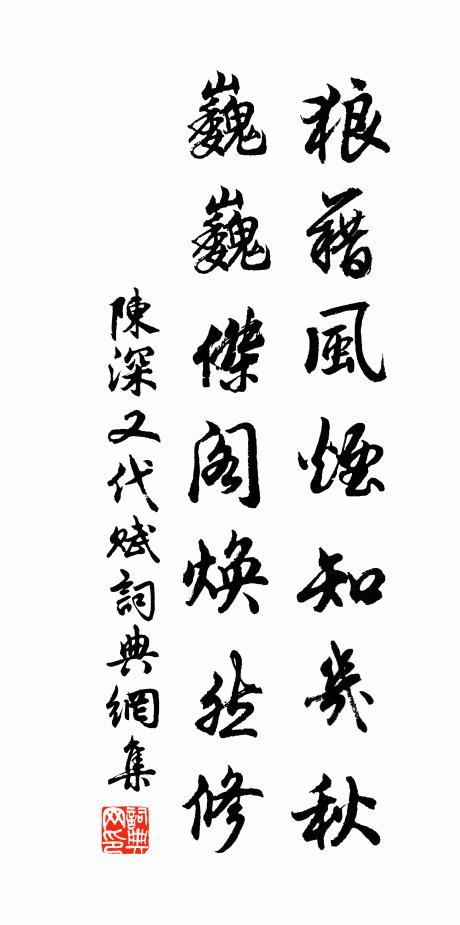 狼藉風煙知幾秋
巍巍傑閣煥然修
陳深又代賦詞典網集
詞典网印